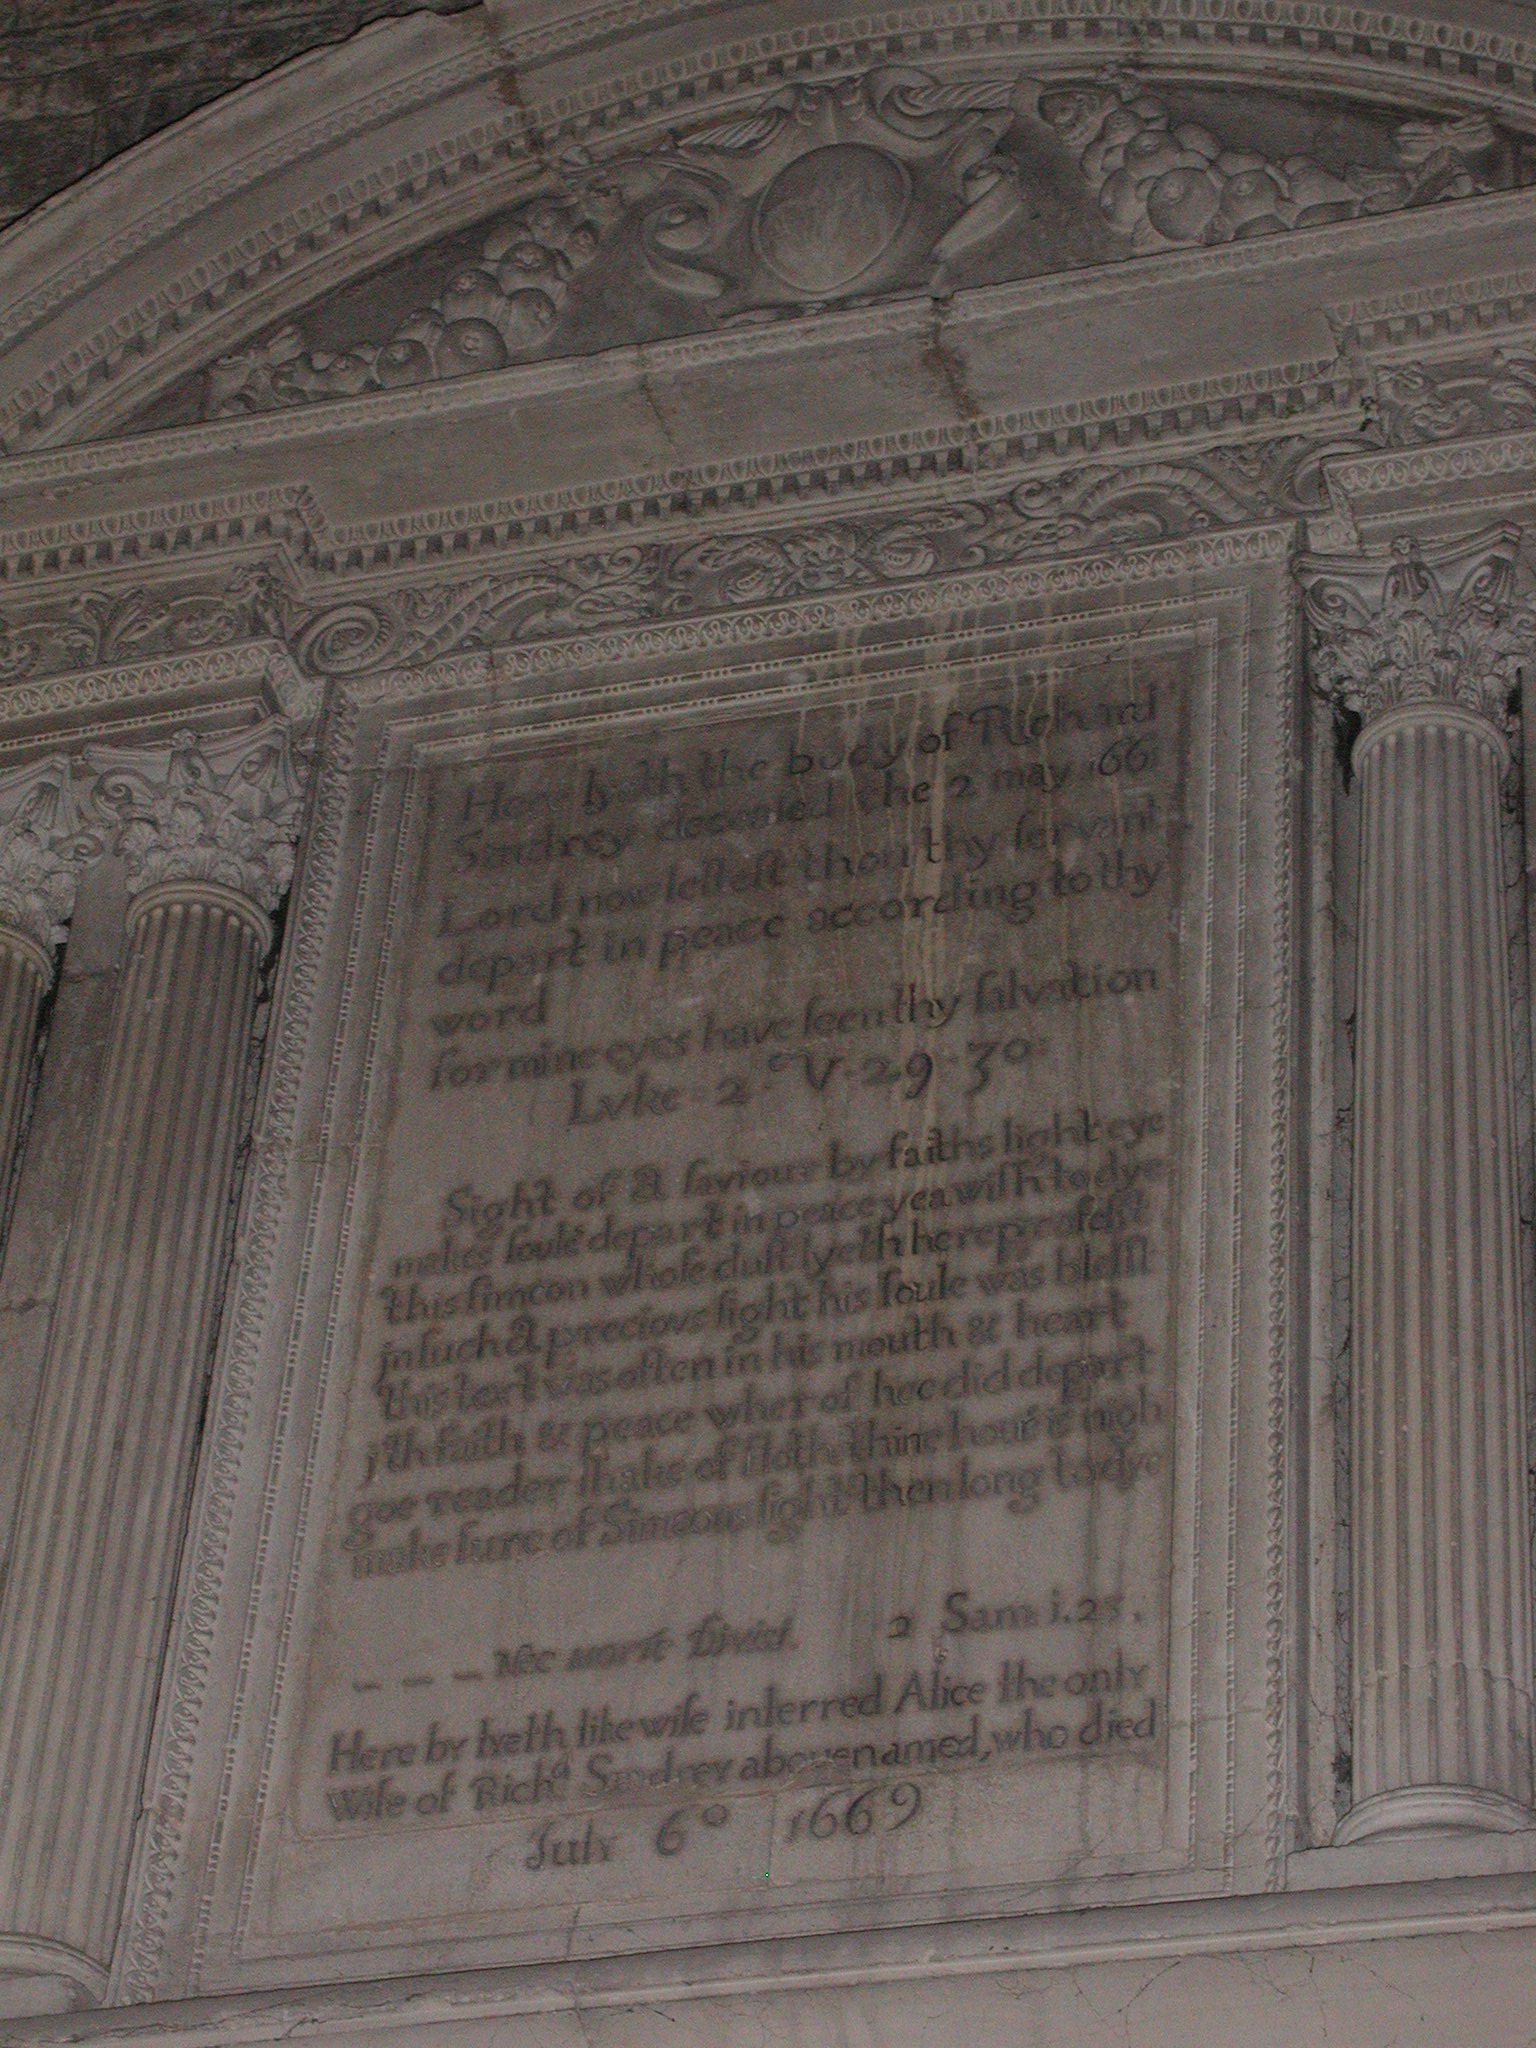 Here lyeth the body of Richard
Sandrey deceased the 2 may 166
Lord now lettest thou thy servant
depart in peace according to thy
word
for mine eyes have seen thy salvation
Lvke 2 V 29 30
Sight of A saviour by faiths light eye
makes soule depart in peace yea wish to dye
this simeon whose dust lyeth here profest
jn such A precious sight his soule was blesst
this text was often in his mouth & heart
jth faith & peace wher of hee did depart
goe reader shake of sloth thine hour is nigh
make sure of Simeons sight then long to dye
– – – Nec mors 2 Sam i. 23.
Here by lyeth likewise interred Alice the only
Wife of Richd Sandrey abovenamed, who died
July 6o 1669